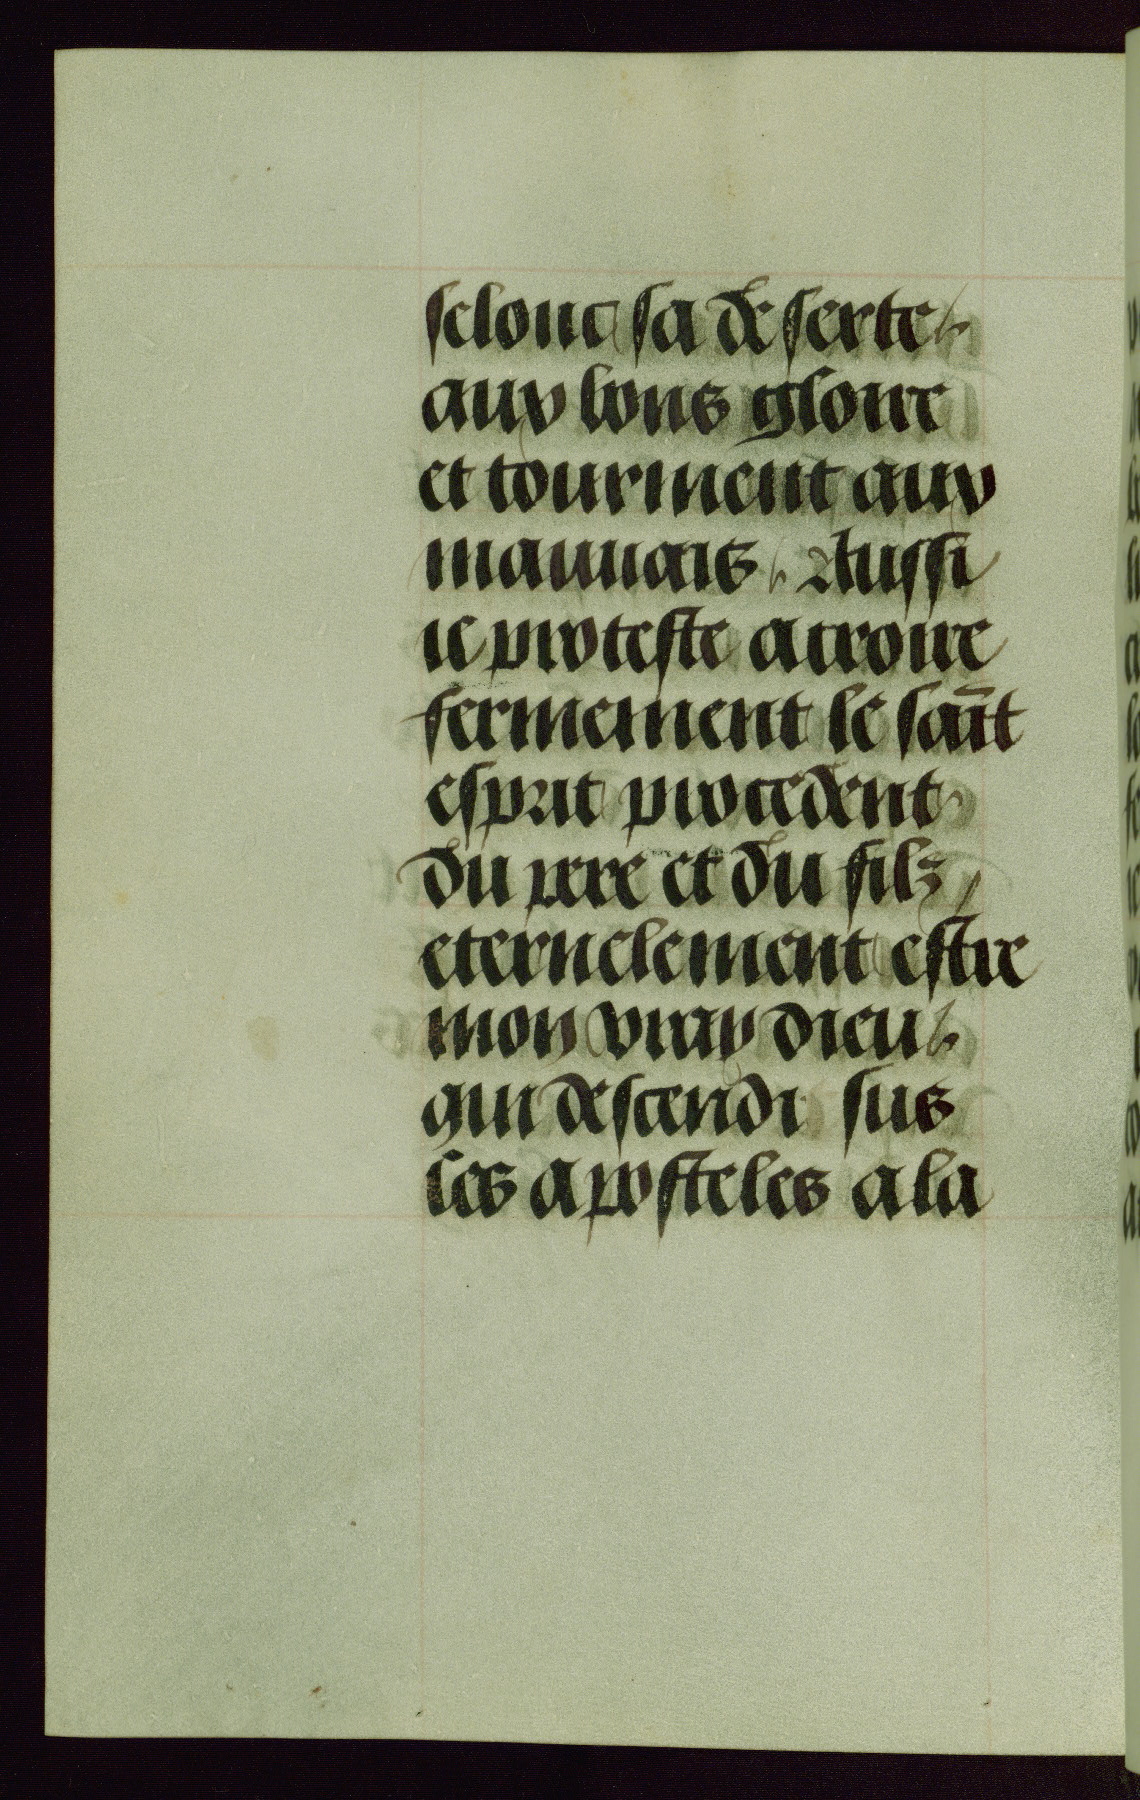 selonc sa deserte
aux bons gloire
et tourment aux
mauuais. Aussi
ie proteste a croire
fermement le sai̅t
esprit procedent
du pere et du filz
eternelement estre
mon vray dieu
qui descendi sus
les aposteles a la